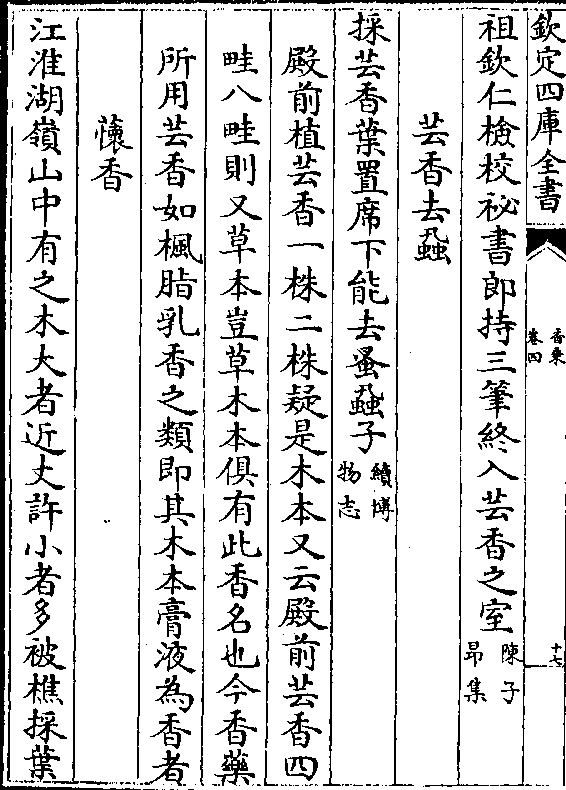 欽定四庫全書
香乘
卷四
十七
祖欽仁檢校祕書郎持三筆終入芸香之室陳子昂集
芸香去蝨
採芸香葉置席下能去蚤蝨子續博物志
殿前植芸香一株二株疑是木本又云殿前芸香四
畦八畦則又草本豈草木本俱有此香名也今香藥
所用芸香如楓脂乳香之類即其木本膏液為香者
蘹香
江淮湖嶺山中有之木大者近丈許小者多被樵採葉